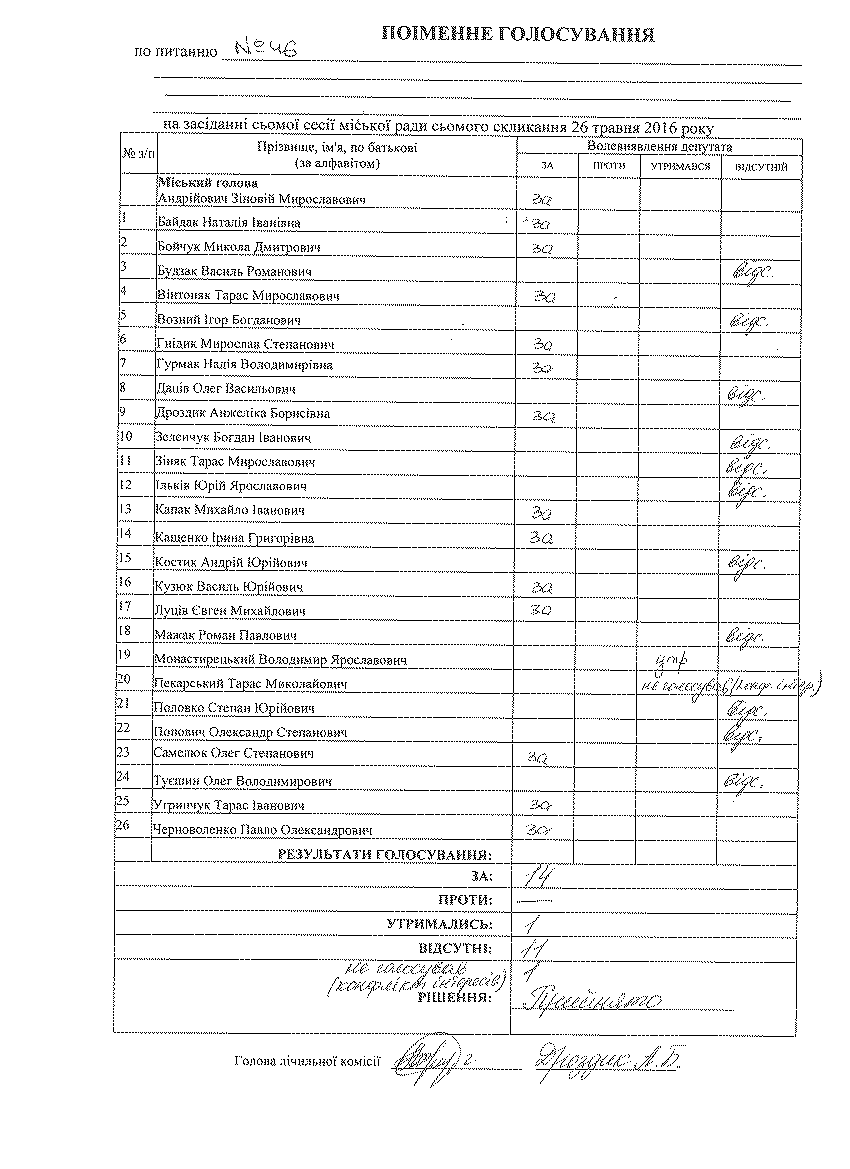 ПОІМЕННЕ ГОЛОСУВАННЯ
по питанню № 46
на засіданні сьомої сесії міської ради сьомого скликання 26 травня 2016 року
№ з/п Прізвище, ім'я, по батькові (за алфавітом) Волевиявлення депутата
ЗА ПРОТИ УТРИМАВСЯ ВІДСУТНІЙ
Міський голова
Андрійович Зіновій Мирославович за
1 Байдак Наталія Іванівна за
2 Бойчук Микола Дмитрович за
3 Будзак Василь Романович відс.
4 Вінтоняк Тарас Мирославович за
5 Возний Ігор Богданович відс.
6 Гнідик Мирослав Степанович за
7 Гурмак Надія Володимирівна за
8 Даців Олег Васильович відс.
9 Дроздик Анжеліка Борисівна за
10 Зеленчук Богдан Іванович відс.
11 Зіняк Тарас Мирославович відс.
12 Ільків Юрій Ярославович відс.
13 Капак Михайло Іванович за
14 Кащенко Ірина Григорівна за
15 Костик Андрій Юрійович відс.
16 Кузюк Василь Юрійович за
17 Луців Євген Михайлович за
18 Мажак Роман Павлович відс.
19 Монастирецький Володимир Ярославович утр
20 Пекарський Тарас Миколайович не голосував (конф. інтер.)
21 Половко Степан Юрійович відс.
22 Попович Олександр Степанович відс.
23 Самелюк Олег Степанович за
24 Туєшин Олег Володимирович відс.
25 Угринчук Тарас Іванович за
26 Черноволенко Павло Олександрович за
РЕЗУЛЬТАТИ ГОЛОСУВАННЯ:
ЗА: 14
ПРОТИ: —
УТРИМАЛИСЬ: 1
ВІДСУТНІ: 11
не голосував 1
(конфлікт інтересів)
РІШЕННЯ: Прийнято
Голова лічильної комісії Дроздик А.Б.